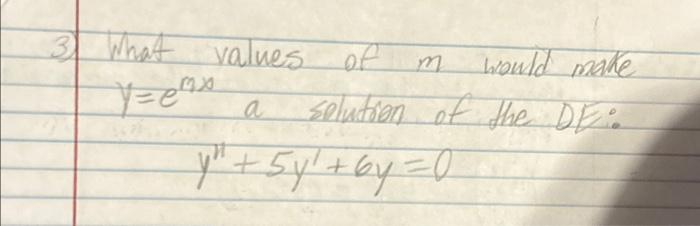 3) What values of m would make
y=e^{mx} a solution of the DE:
y" + 5y' + 6y = 0